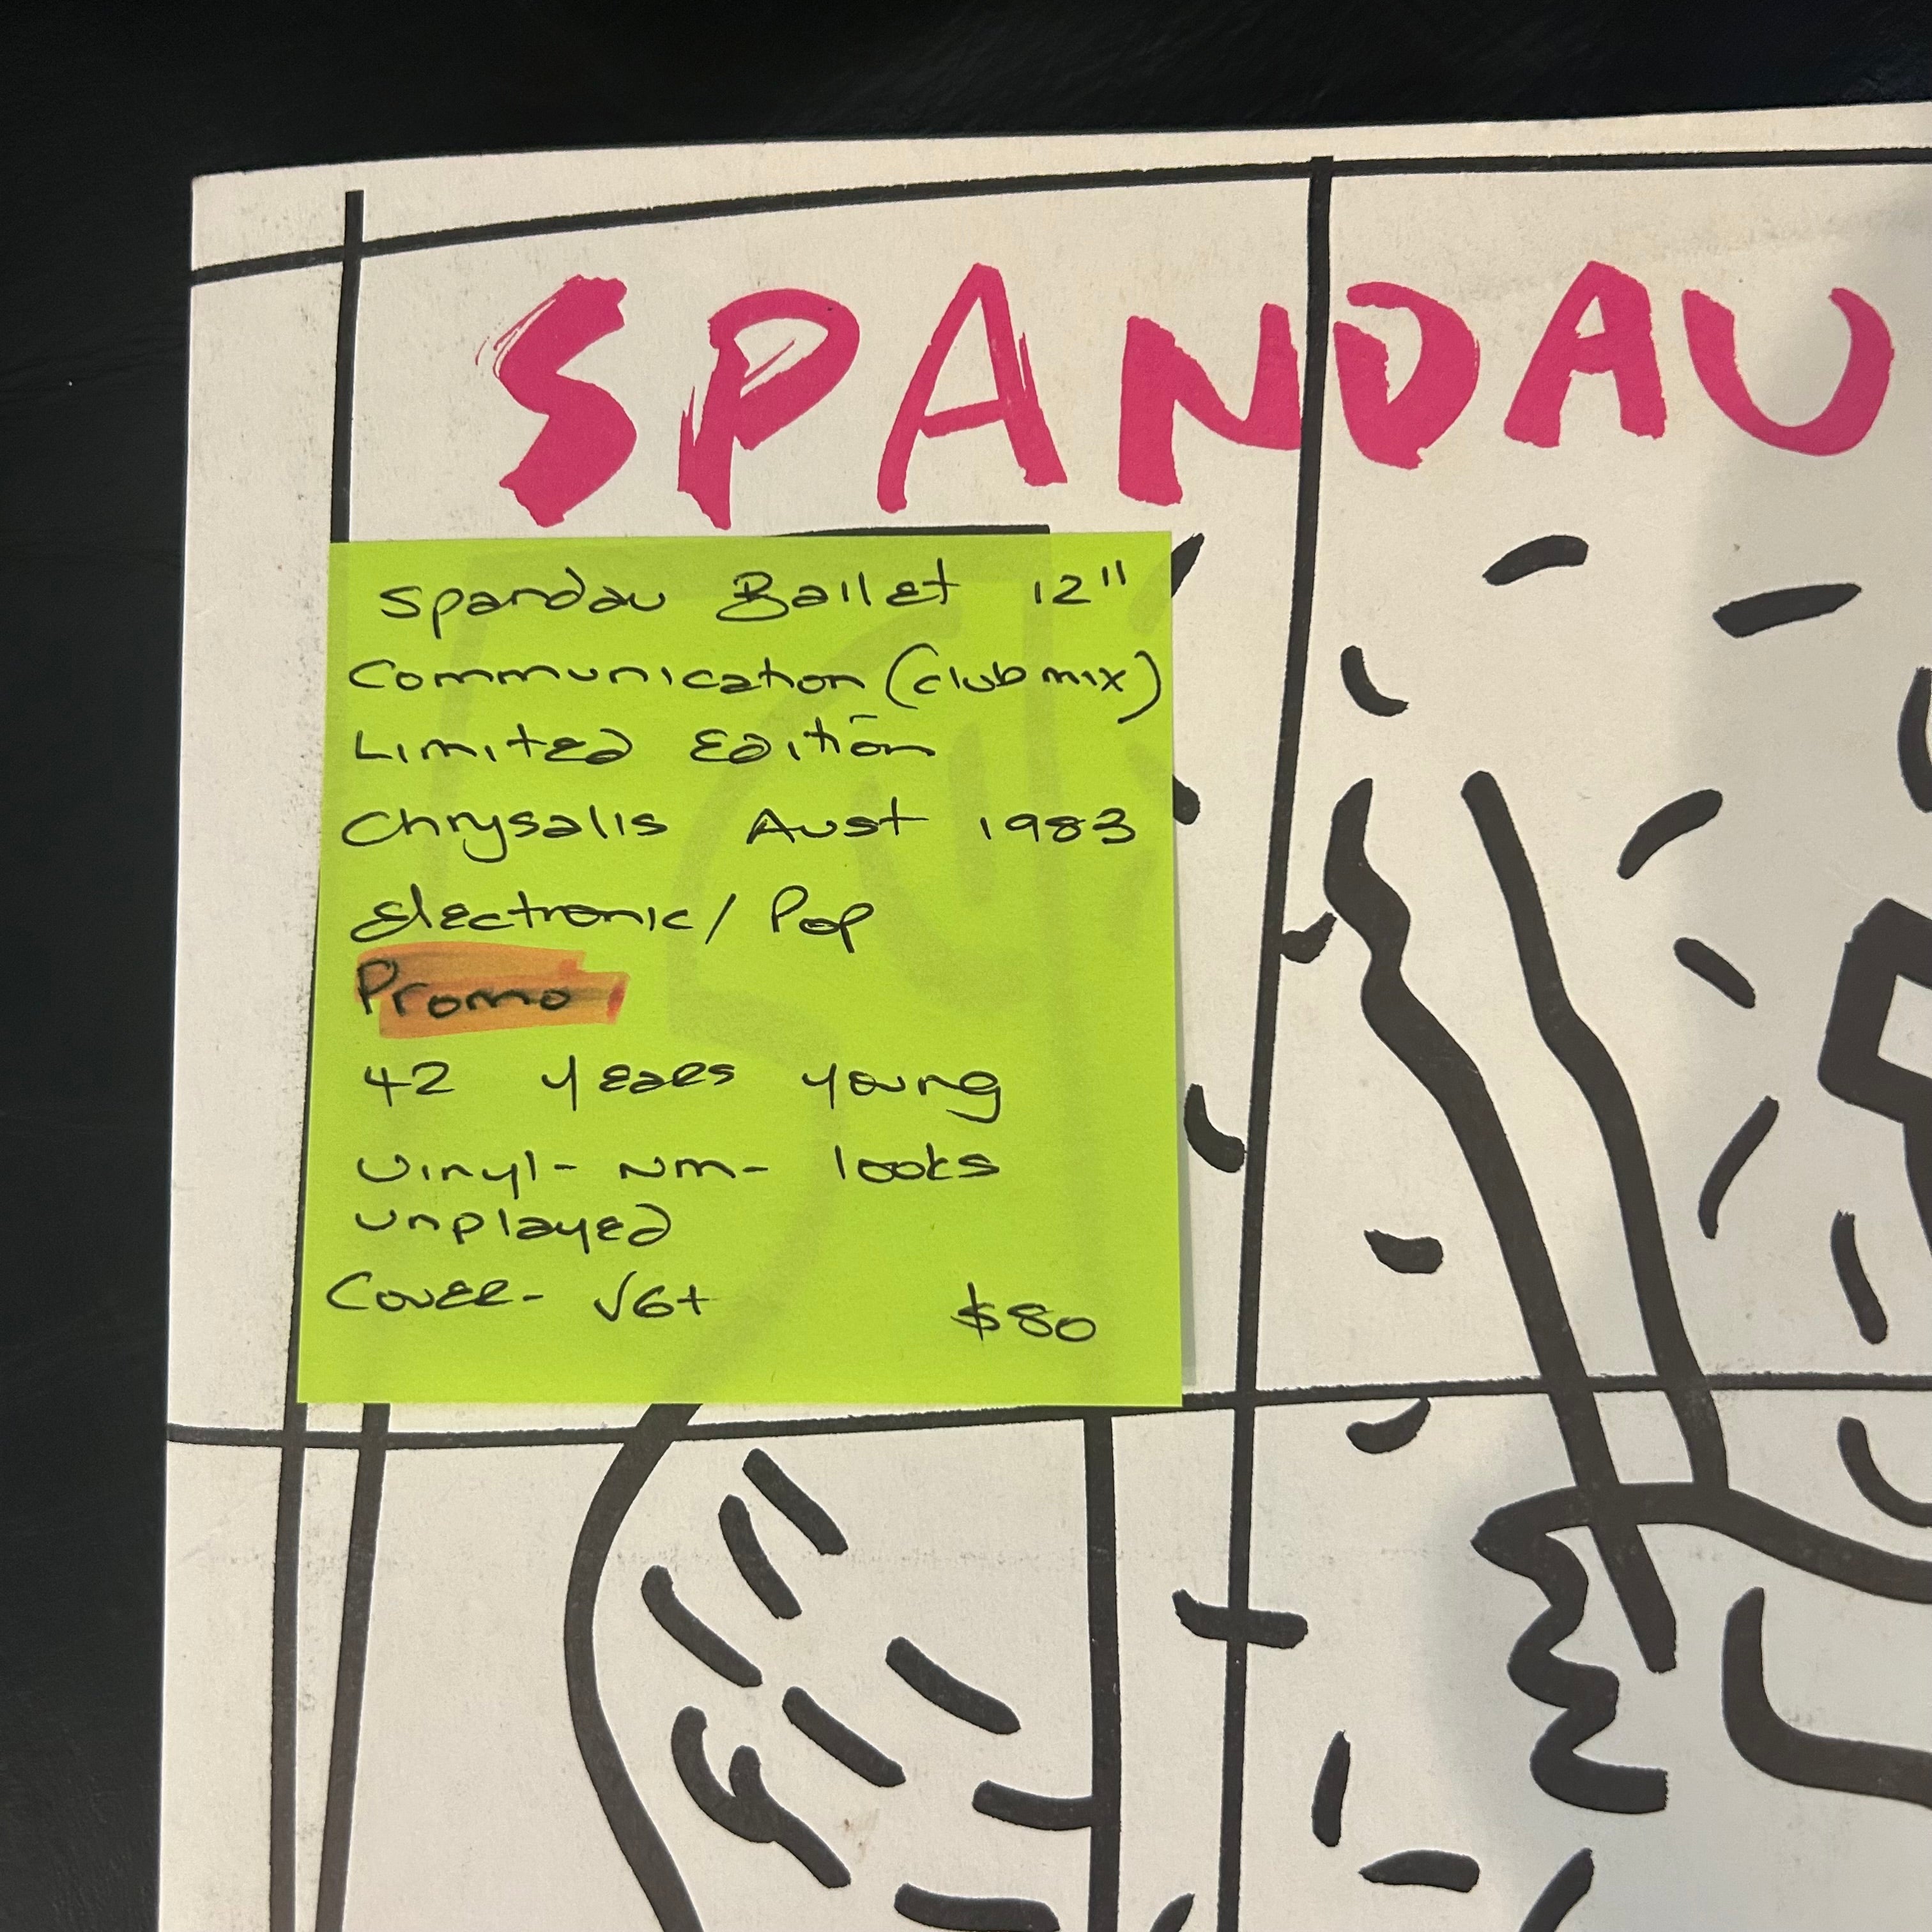 SPANDAU
Spandau Ballet 12"
Communication (club mix)
Limited Edition
Chrysalis Aust 1983
Electronic/ Pop
Promo
42 years young
Vinyl- NM- looks
unplayed
Cover- VG+ $80